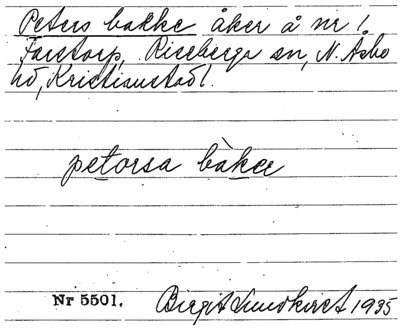 Peters backe åker å nr 1
Färetorp, Riseberga sn, N. Åsbo
hd, Kristianstad l.
petorsa bàkee
Nr 5501. Birgit Lundkvist 1935